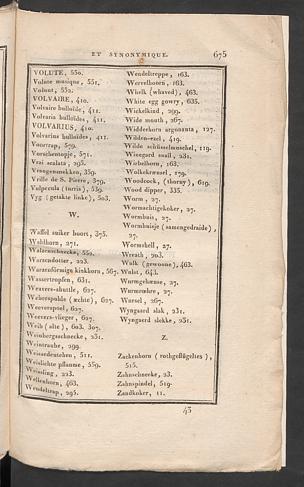 ET SYNONYMIQUE. 675
VOLUTE, 550.
Volute musique, 551.
Volunt, 552.
VOLVAIRE, 410.
Volvaire bulloïde, 411.
Volvaria bulloïdes, 411.
VOLVARIUS, 410.
Volvarius bulloïdes, 411.
Voortrap, 579.
Vorschentopje, 571.
Vrai scalata, 295.
Vroegenmekken, 359.
Vrille de S. Pierre, 379.
Vulpecula (turris), 539.
Vyg (getakte linke), 503.
W.
Waffel suiker hoort, 375.
Wahlhorn, 271.
Walzenschnecke, 550.
Warzendotter, 223.
Warzenförmige kinkhorn, 567.
Wassertropfen, 631.
Weavers-shuttle, 627.
Weberspulde (æchte), 627.
Weeverspoel, 627.
Weevers-vlieger, 627.
Weib (alte), 603. 307.
Weinbergsschnecke, 231.
Weintraube, 299.
Weissedestehen, 511.
Weislichte pflaume, 559.
Weissling, 223.
Wellenhorn, 463.
Wendeltrap, 295.
Wendeltreppe, 163.
Wervelhoren, 163.
Whelk (whaved), 463.
White egg gowry, 635.
Wickelkind, 299.
Wide mouth, 267.
Widderkorn argonauta, 127.
Wilden-ezel, 419.
Wilde schüsselmuschel, 119.
Winegard snail, 231.
Wirbelhorn, 163.
Wolkekreusel, 179.
Woodcock, (thorny), 619.
Wood dipper, 335.
Worm, 27.
Wormachtigekoker, 27.
Wormbuis, 27.
Wormbuisje (samengedraide), 27.
Wormshell, 27.
Wreath, 203.
Wulk (gewoone), 463.
Wulst, 643.
Wurmgeheuse, 27.
Wurmrohre, 27.
Wursel, 267.
Wyngaerd slak, 231.
Wyngaerd slekke, 231.
Z.
Zackenhorn (rothgeflügeltes),
515.
Zahnschnecke, 23.
Zahnspindel, 519.
Zandkoker, 11.
43